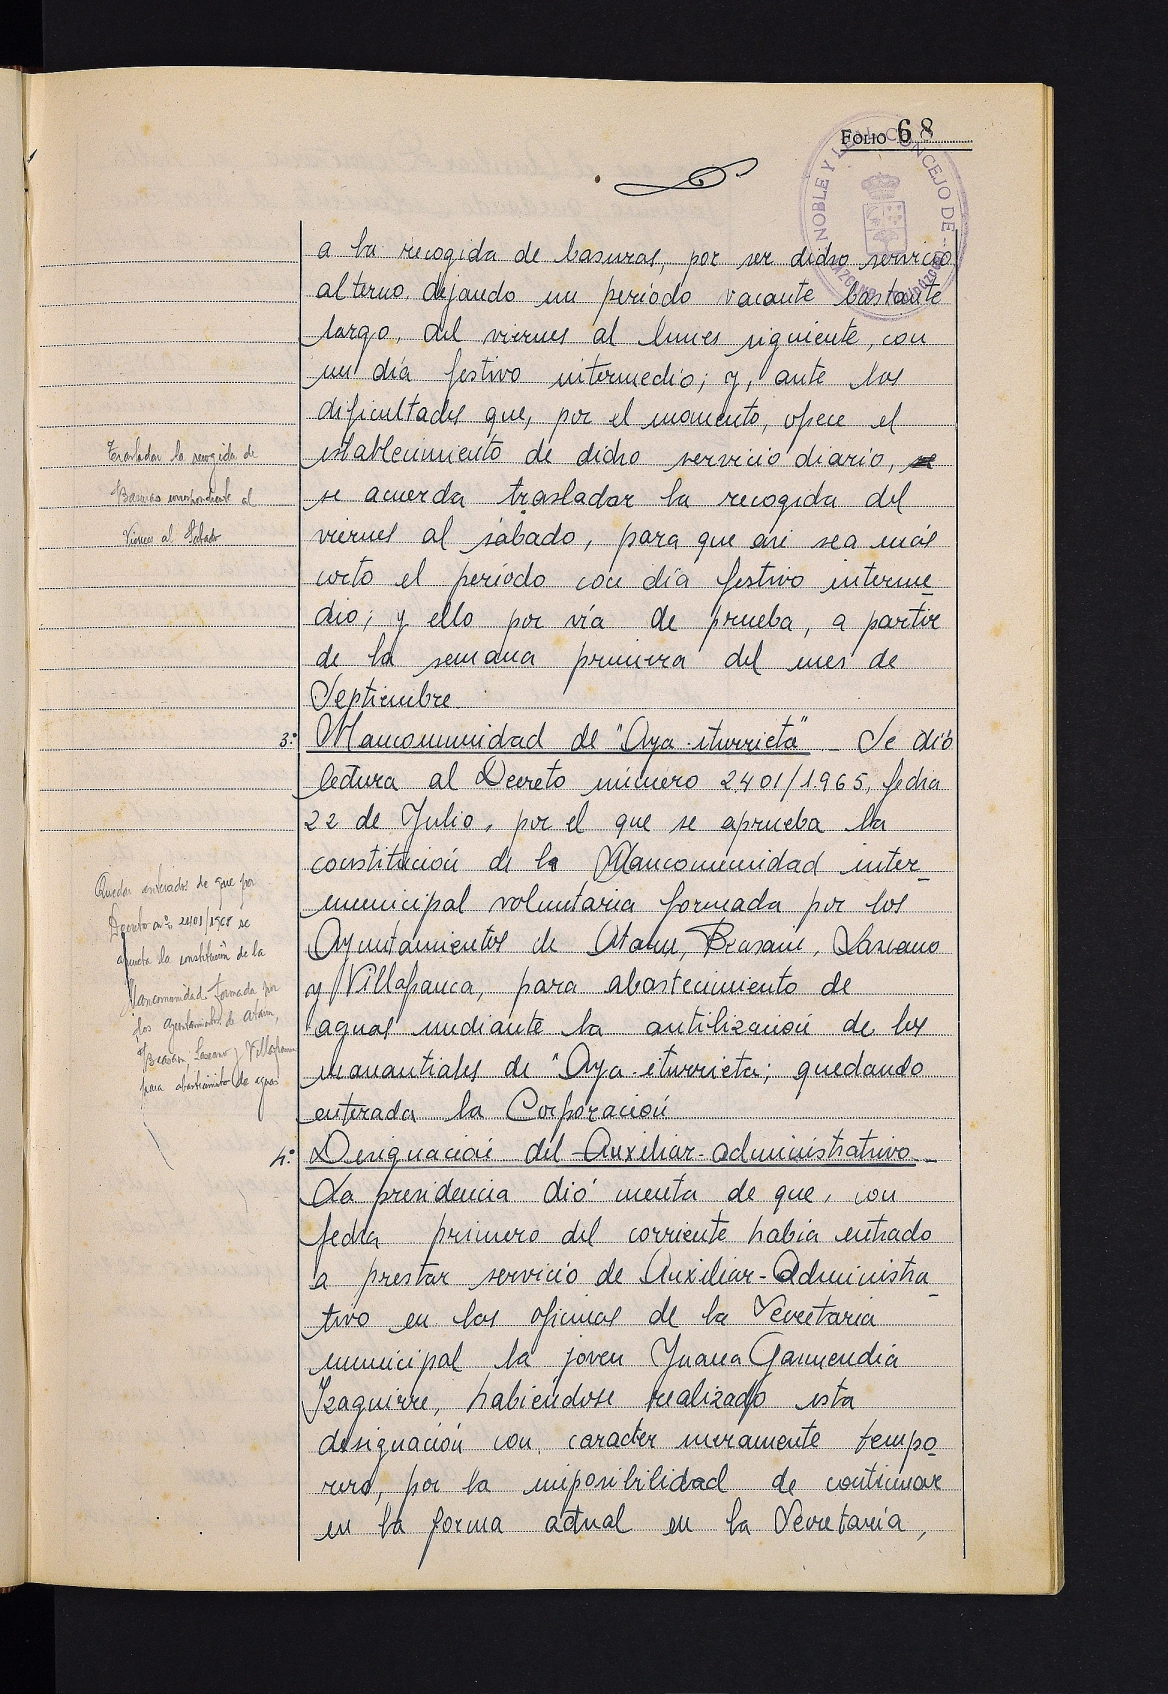 Folio 68
NOBLE Y LEAL CONCEJO DE
a la recogida de basuras, por ser dicho servicio
alterno, dejando un período vacante bastante
largo, del viernes al lunes siguiente, con
un día festivo intermedio; y, ante las
dificultades que, por el momento, ofrece el
establecimiento de dicho servicio diario,
se acuerda trasladar la recogida del
viernes al sábado, para que así sea más
corto el período con día festivo interme-
dio; y ello por vía de prueba, a partir
de la semana primera del mes de
Septiembre
Trasladar la recogida de
Basuras correspondiente al
Viernes al Sábado
3.º Mancomunidad de "Aya-iturrieta" - Se dió
lectura al Decreto número 2401/1.965, fecha
22 de Julio, por el que se aprueba la
constitución de la Mancomunidad inter-
municipal voluntaria formada por los
Ayuntamientos de Ataun, Beasain, Lazcano
y Villafranca, para abastecimiento de
aguas mediante la autilización de los
manantiales de "Aya-iturrieta; quedando
enterada la Corporación
Quedar enterados de que por
Decreto nº 2401/1965 se
aprueba la constitución de la
Mancomunidad formada por
los Ayuntamientos de Ataun,
Beasain, Lazcano y Villafranca
para abastecimiento de aguas
4.º Designación del Auxiliar-administrativo -
La presidencia dió cuenta de que, con
fecha primero del corriente había entrado
a prestar servicio de Auxiliar-Administra-
tivo en las oficinas de la Secretaría
municipal la joven Juana Garmendia
Izaguirre, habiéndose realizado esta
designación con caracter meramente tempo-
rero, por la imposibilidad de continuar
en la forma actual en la Secretaría,